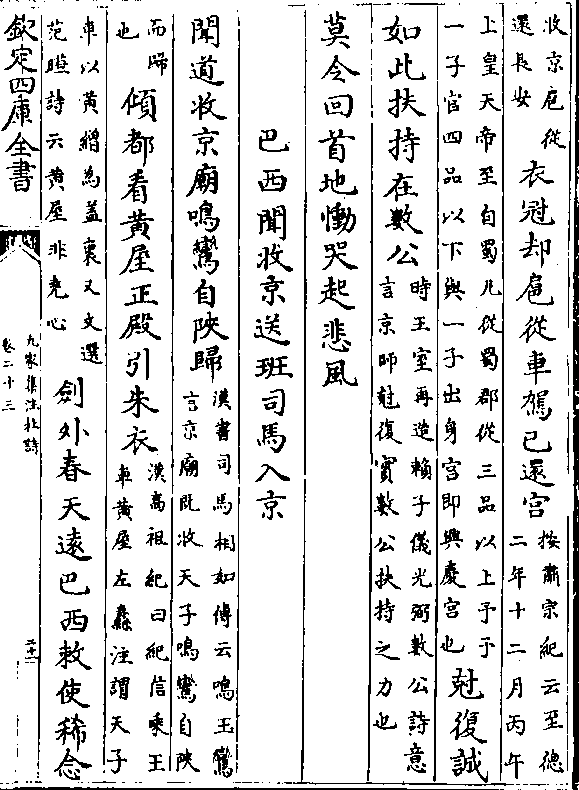 收京扈從
還長安
衣冠却扈從車駕已還宫
按肅宗紀云至德
二年十二月丙午
上皇天帝至自蜀凡從蜀郡從三品以上予于
一子官四品以下與一子出身宫即興慶宫也
尅復誠
如此扶持在數公
時王室再造賴子儀光弼數公詩意
言京師尅復實數公扶持之力也
莫令回首地慟哭起悲風
巴西聞收京送班司馬入京
聞道收京廟鳴鑾自陜歸
漢書司馬相如傳云鳴玉鸞
言京廟既收天子鳴鑾自陜
而歸
也
傾都看黄屋正殿引朱衣
漢高祖紀曰紀信乘王
車黄屋左纛注謂天子
車以黄繒為葢裏又文選
范曄詩云黄屋非堯心
劍外春天遠巴西敕使稀念
欽定四庫全書
九家集注杜詩
卷二十三